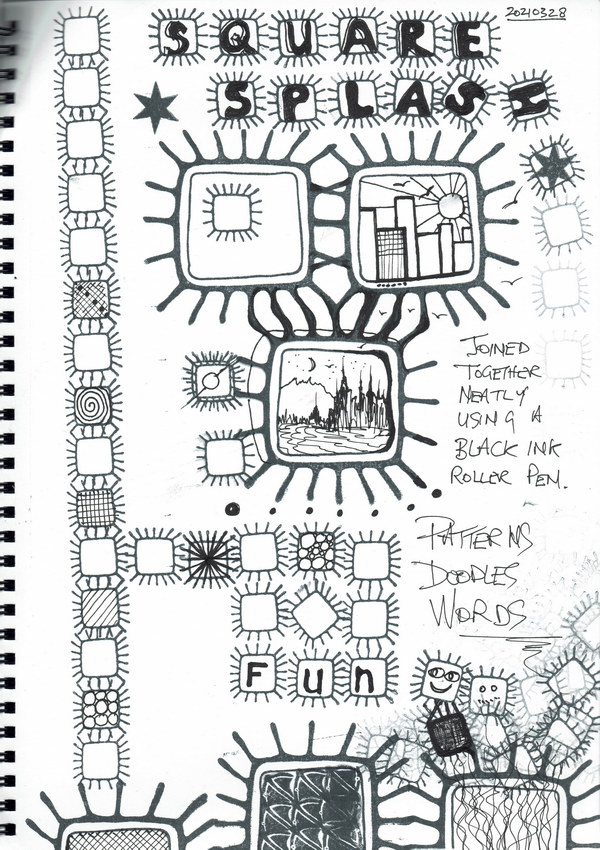 20210328
SQUARE
SPLASH
JOINED
TOGETHER
NEATLY
USING A
BLACK INK
ROLLER PEN.
PATTERNS
DOODLES
WORDS
Fun